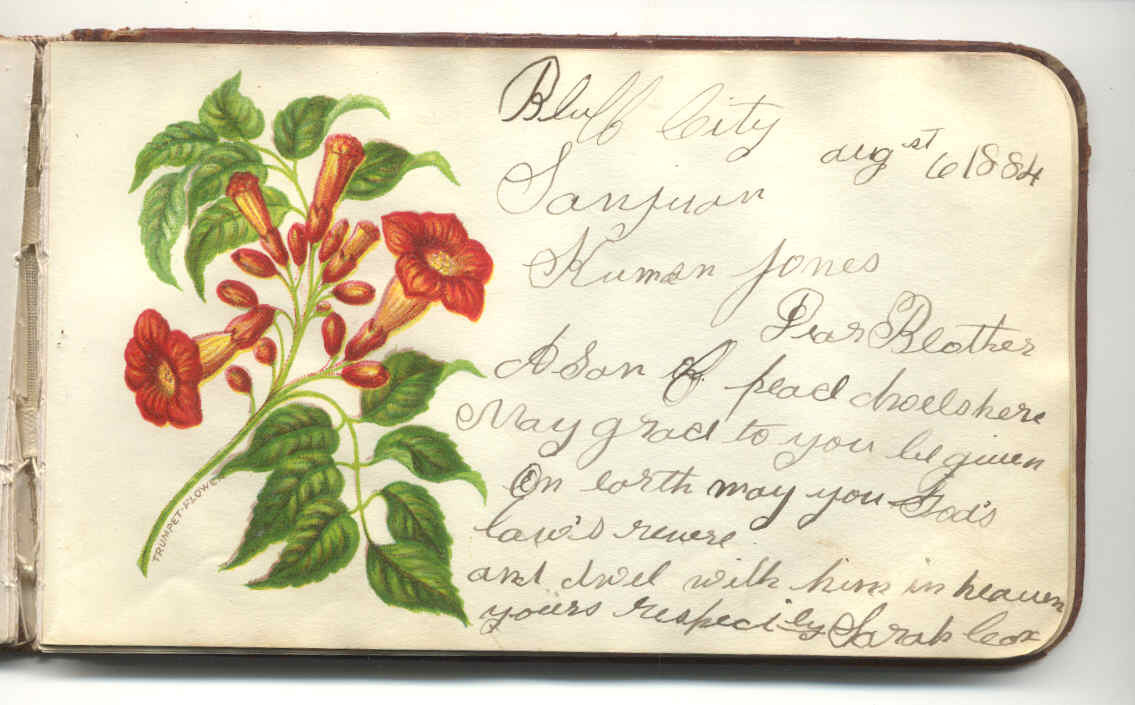 Bluff City
augst 6 1884
Sanjuan
Kumen Jones
Dear Blother
A Son of peace dwels here
May grace to you be given
On earth may you God's
law's revere
and dwel with him in heaven
yours respecily Sarah Cox
TRUMPET-FLOWER